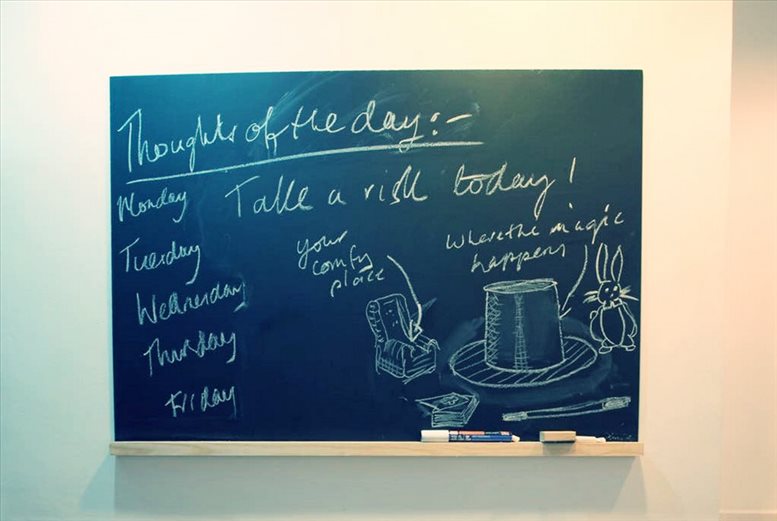 Thoughts of the day:-
Monday Take a risk today!
Tuesday
Wednesday
Thursday
Friday
your
comfy
place
where the magic
happens